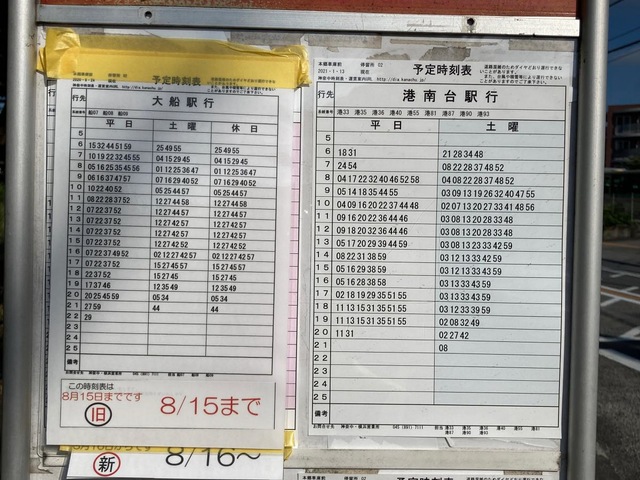 予定時刻表
行先
大船駅行
系統番号 船07 船08 船09
平日 土曜 休日
5
6 15 32 44 51 59 25 49 55 25 49 55
7 10 19 22 32 45 55 04 15 29 45 04 15 29 45
8 05 16 25 35 45 56 01 12 25 36 47 01 12 25 36 47
9 06 16 37 47 57 07 16 29 40 52 07 16 29 40 52
10 10 22 40 52 05 25 44 57 05 25 44 57
11 08 22 28 37 52 12 27 44 58 12 27 44 58
12 07 22 37 52 12 27 44 57 12 27 44 57
13 07 22 37 52 12 27 44 57 12 27 44 57
14 07 22 37 52 12 27 42 57 12 27 42 57
15 07 22 37 52 12 27 42 52 12 27 42 52
16 07 22 37 49 52 02 12 27 42 57 02 12 27 42 57
17 07 22 37 52 15 27 45 57 15 27 45 57
18 22 37 52 15 27 45 15 27 45
19 17 37 46 12 35 49 12 35 49
20 20 25 45 59 05 34 05 34
21 27 59 44 44
22 29
23
24
25
備考
この時刻表は
8月15日までです
旧 8/15まで
新 8/16〜
本郷車庫前 停留所 02
2021-1-13 現在
予定時刻表
道路混雑のためダイヤどおり運行できないことがあります。
行先
港南台駅行
系統番号 港33 港35 港36 港40 港55 港81 港87 港90 港93
平日 土曜
5
6 18 31 21 28 34 48
7 24 54 08 22 28 37 48 52
8 04 17 22 32 40 46 52 58 04 08 22 28 37 48 52
9 05 14 18 35 44 55 03 09 13 19 26 32 40 47 55
10 04 09 16 20 22 37 44 48 02 07 13 20 27 33 41 48 56
11 09 16 20 22 36 44 46 03 08 13 20 28 33 48
12 09 18 20 32 36 44 46 03 08 13 20 28 33 48
13 05 17 20 29 39 44 59 03 08 13 23 33 42 59
14 08 22 31 38 59 03 12 13 33 42 59
15 05 16 29 38 59 03 12 13 33 43 59
16 05 16 28 38 58 03 13 33 43 59
17 02 18 19 29 35 51 55 03 13 33 43 59
18 11 13 15 31 35 51 55 03 12 33 39 59
19 11 13 15 31 35 51 55 02 08 32 49
20 11 31 02 27 42
21 08
22
23
24
25
備考